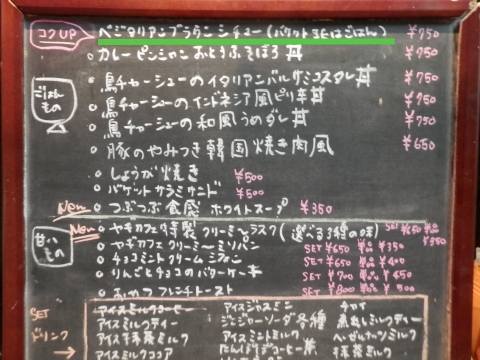 コクUP ベジタリアンブラウンシチュー(バケットまたはごはん) ¥750
カレーピンシャン おとうふそぼろ丼 ¥750
ごはんもの
鳥チャーシューのイタリアンバルサミコスダレ丼 ¥750
鳥チャーシューのインドネシア風ピリ辛丼 ¥750
鳥チャーシューの和風うめダレ丼 ¥750
豚のやみつき韓国焼き肉風 ¥650
しょうが焼き ¥500
バケットサラミサンド ¥500
New つぶつぶ食感 ホワイトスープ ¥350
New ヤギカフェ特製 クリーミーラスク(選べる3種の味) SET ¥650 ¥350
甘いもの
ヤギカフェクリーミーミリパン SET ¥650 ¥350
チョコミントクリーム SET ¥650 ¥400
りんごとチョコのバターケーキ SET ¥700 ¥450
おやつフレンチトースト SET ¥800 ¥500
SET ドリンク →
アイスミルクコーヒー アイスジャスミン チャイ
アイスミルクティー ジンジャーソーダ各種 煮出しミルクティー
アイス抹茶ミルク アイスミントミルク ヘーゼルナッツミルク
アイスミルクココア たんぽぽコーヒー 抹茶ミルク